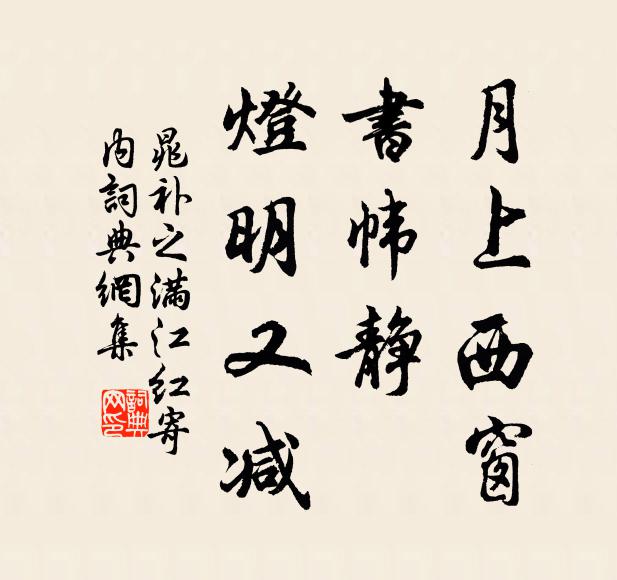 月上西窗
書帏靜
燈明又减
晁补之满江红寄
内詞典網集
詞典
网印